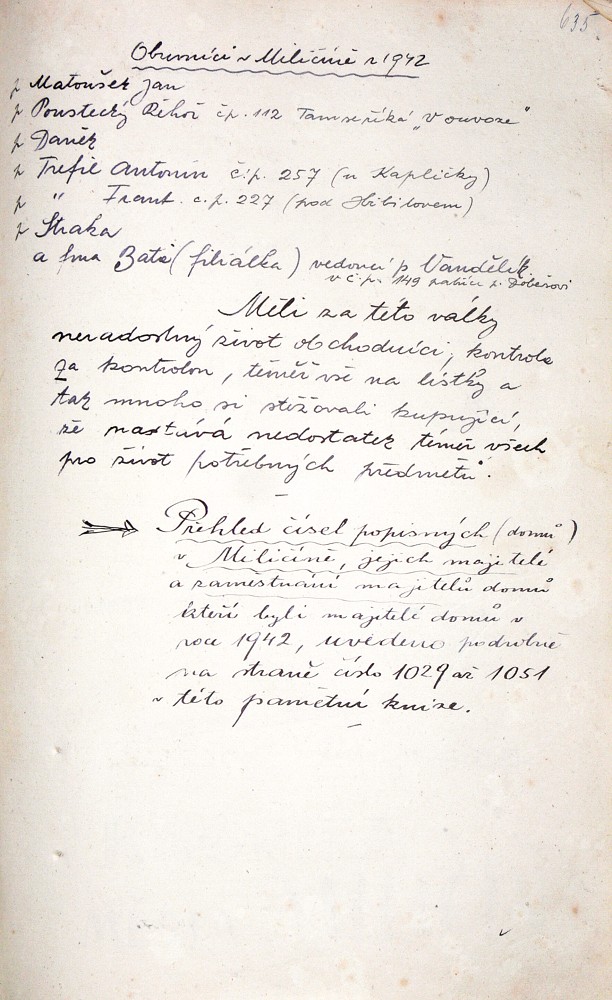 635.
Obuvníci v Miličíně r 1942
p Matoušek Jan
p Poustecký Řehoř č.p. 112 Tam se říká „V ouvoze"
p Daněk
p Trefil Antonín č.p. 257 (u Kapličky)
p " Frant. č.p. 227 (pod
p Straka
a fma Baťa (filiálka) vedoucí p Vandělík
v č.p. 149 patřící p.
Měli za této války
neradostný život obchodníci, kontrola
za kontrolou, téměř vše na lístky a
tak mnoho si stěžovali kupující,
že nastává nedostatek téměř všech
pro život potřebných předmětů.
Přehled čísel popisných (domů)
v Miličíně, jejich majitelé
a zaměstnání majitelů domů
kteří byli majitelé domů v
roce 1942, uvedeno podrobně
na straně číslo 1029 až 1051
v této pamětní knize.